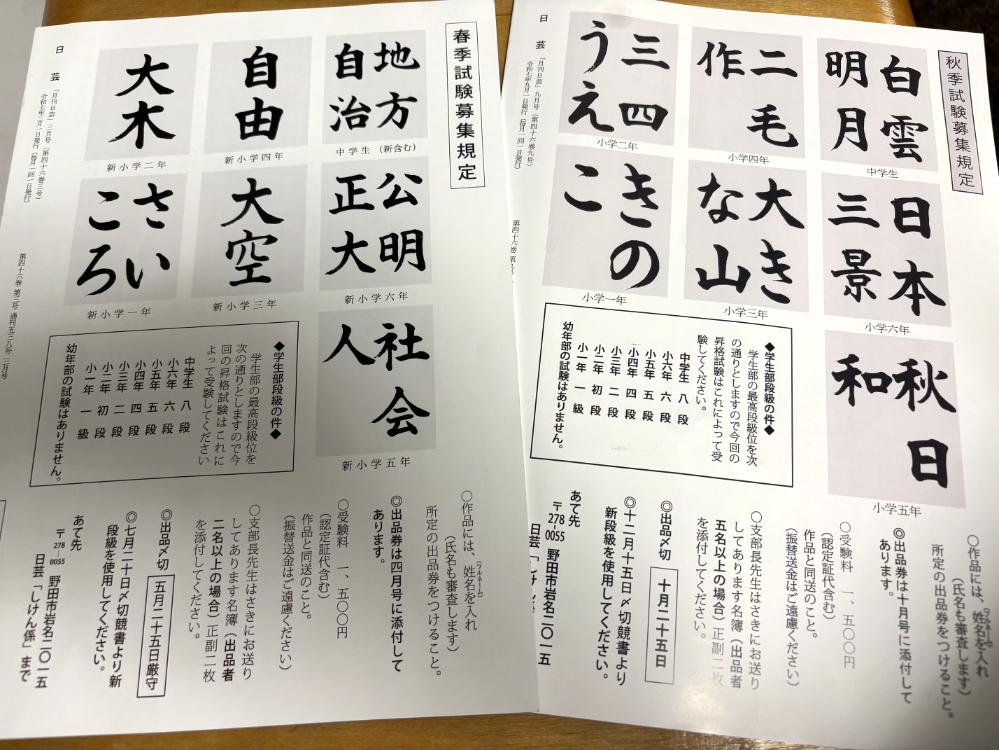 日芸
「月刊日芸」三月号（第四十六巻三号）
令和七年三月一日発行（毎月一回一日発行）
第四十六巻 第三号 通刊五三八号 三月号
春季試験募集規定
地方
自治
中学生（新含む）
自由
新小学四年
大木
新小学二年
公明
正大
新小学六年
大空
新小学三年
さい
ころ
新小学一年
社会
人
新小学五年
◆学生部段級の件◆
学生部の最高段級位を
次の通りとしますので今
回の昇格試験はこれに
よって受験してください
中学生 八段
小六年 六段
小五年 五段
小四年 四段
小三年 二段
小二年 初段
小一年 一級
幼年部の試験はありません。
○作品には、姓名を入れ
（フルネーム）
（氏名も審査します）
所定の出品券をつけること。
◎出品券は四月号に添付して
あります。
○受験料 一、五〇〇円
（認定証代含む）
作品と同送のこと。
（振替送金はご遠慮ください）
○支部長先生はさきにお送り
してあります名簿（出品者
二名以上の場合）正副二枚
を添付してください。
◎出品〆切 五月二十五日厳守
◎七月二十日〆切競書より新
段級を使用してください。
あて先
〒278-0055 野田市岩名二〇一五
日芸「しけん係」まで
日芸
「月刊日芸」九月号（第四十六巻九号）
令和七年九月一日発行（毎月一回一日発行）
秋季試験募集規定
白雲
明月
中学生
二毛
作
小学四年
三四
うえ
小学二年
日本
三景
小学六年
大き
な山
小学三年
きの
こ
小学一年
秋日
和
小学五年
◆学生部段級の件◆
学生部の最高段級位を次
の通りとしますので今回の
昇格試験はこれによって受
験してください。
中学生 八段
小六年 六段
小五年 五段
小四年 四段
小三年 二段
小二年 初段
小一年 一級
幼年部の試験はありません。
○作品には、姓名を入れ
（フルネーム）
（氏名も審査します）
所定の出品券をつけること。
◎出品券は十月号に添付して
あります。
○受験料 一、五〇〇円
（認定証代含む）
作品と同送のこと。
（振替送金はご遠慮ください）
○支部長先生はさきにお送り
してあります名簿（出品者
五名以上の場合）正副二枚
を添付してください。
◎出品〆切 十月二十五日
◎十二月十五日〆切競書より
新段級を使用してください。
あて先
〒278-0055 野田市岩名二〇一五
日芸「しけん